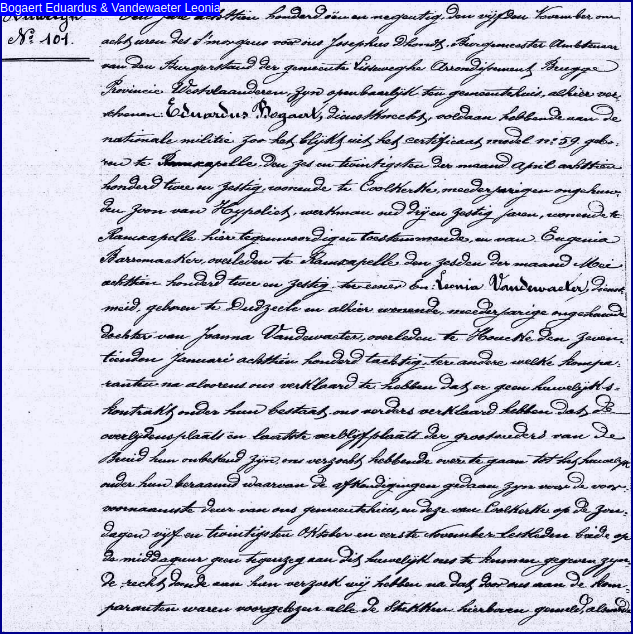 Bogaert Eduardus & Vandewaeter Leonia
Huwelijk
N.º 101.
Den jare achttien honderd een en negentig, den vijfden November om
acht uren des s'morgens voor ons Josephus Dhondt, Burgemeester Ambtenaar
van den Burgerstand der gemeente Lisseweghe Arrondissement Brugge
Provincie Westvlaanderen, zijn openbaarlijk ten gemeentehuis, alhier ver-
schenen. Eduardus Bogaert, dienstknecht, voldaan hebbende aan de
nationale militie zoo het blijkt uit het certificaat model nº 59 gebo-
ren te Ramscapelle den zes en twintigsten der maand April achttien
honderd twee en zestig wonende te Coolkerke, meerderjarigen ongehuw-
den zoon van Hypoliet, werkman oud drij en zestig jaren, wonende te
Ramscapelle hier tegenwoordig en toestemmende, en van Eugenia
Barremaecker, overleden te Ramscapelle den zesden der maand Mei
achttien honderd twee en zestig ter eener en: Leonia Vandewaeter, dienst
meid, geboren te Dudzeele en alhier wonende meerderjarige ongehuwde
dochter van Joanna Vandewaeter, overleden te Houcke den zeven-
tienden Januari achttien honderd tachtig, ter andere welke kompa-
ranten na alvorens ons verklaard te hebben dat er geen huwelijks-
kontrakt onder hun bestaat, ons verders verklaard hebben dat de
overlijdensplaats en laatste verblijfplaats der grootmoeders van de
Bruid hun onbekend zijn, ons verzocht hebbende over te gaan tot het huwelijk
onder hun beraamd waarvan de afkondigingen gedaan zijn voor de voor-
voornaamste deur van ons gemeentehuis, en deze van Coolkerke op de zon-
dagen vijf en twintigsten Oktober en eersten November lestleden beide op
de middaguur geen tegenzeg aan dit huwelijk ons te kennen gegeven zijn-
de, recht doende aan hun verzoek wij hebben na dat door ons aan de kom-
paranten waren voorgelezen alle de Stukken hierboven gemeld,